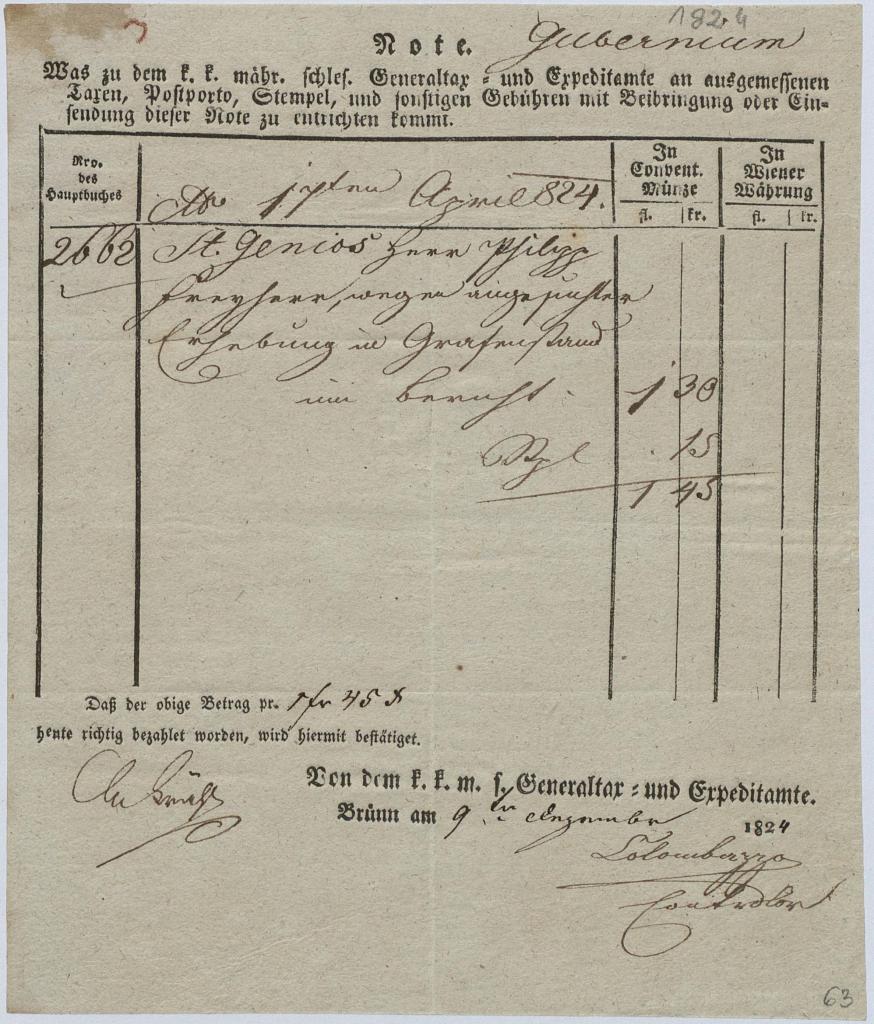 1824
Note. Gubernium
Was zu dem k. k. mähr. schles. Generaltax- und Expeditamte an ausgemessenen
Taxen, Postporto, Stempel, und sonstigen Gebühren mit Beibringung oder Ein-
sendung dieser Note zu entrichten kommt.
Nro. des Hauptbuches
17ten April 824.
In Convent. Münze
fl. kr.
In Wiener Währung
fl. kr.
2662 St. Genios Herr Philipp
Freyherr, wegen angesuchter
Erhebung in Grafenstand
Bericht. 1 30
Stpl . 15
1 45
Daß der obige Betrag pr. 1 fr 45 x
heute richtig bezahlet worden, wird hiermit bestätiget.
Von dem k. k. m. s. Generaltax- und Expeditamte.
Brünn am 9ten Dezember 1824
Colombazzo
Controlor
63